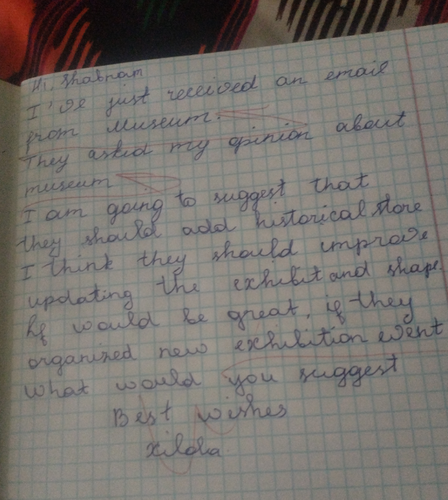 Hi, Shabnam
I've just received an email
from Museum.
They asked my opinion about
museum
I am going to suggest that
they should add historical store
I think they should improve
updating the exhibit and shape.
If would be great, if they
organized new exhibition event
What would you suggest
Best wishes
Xilola